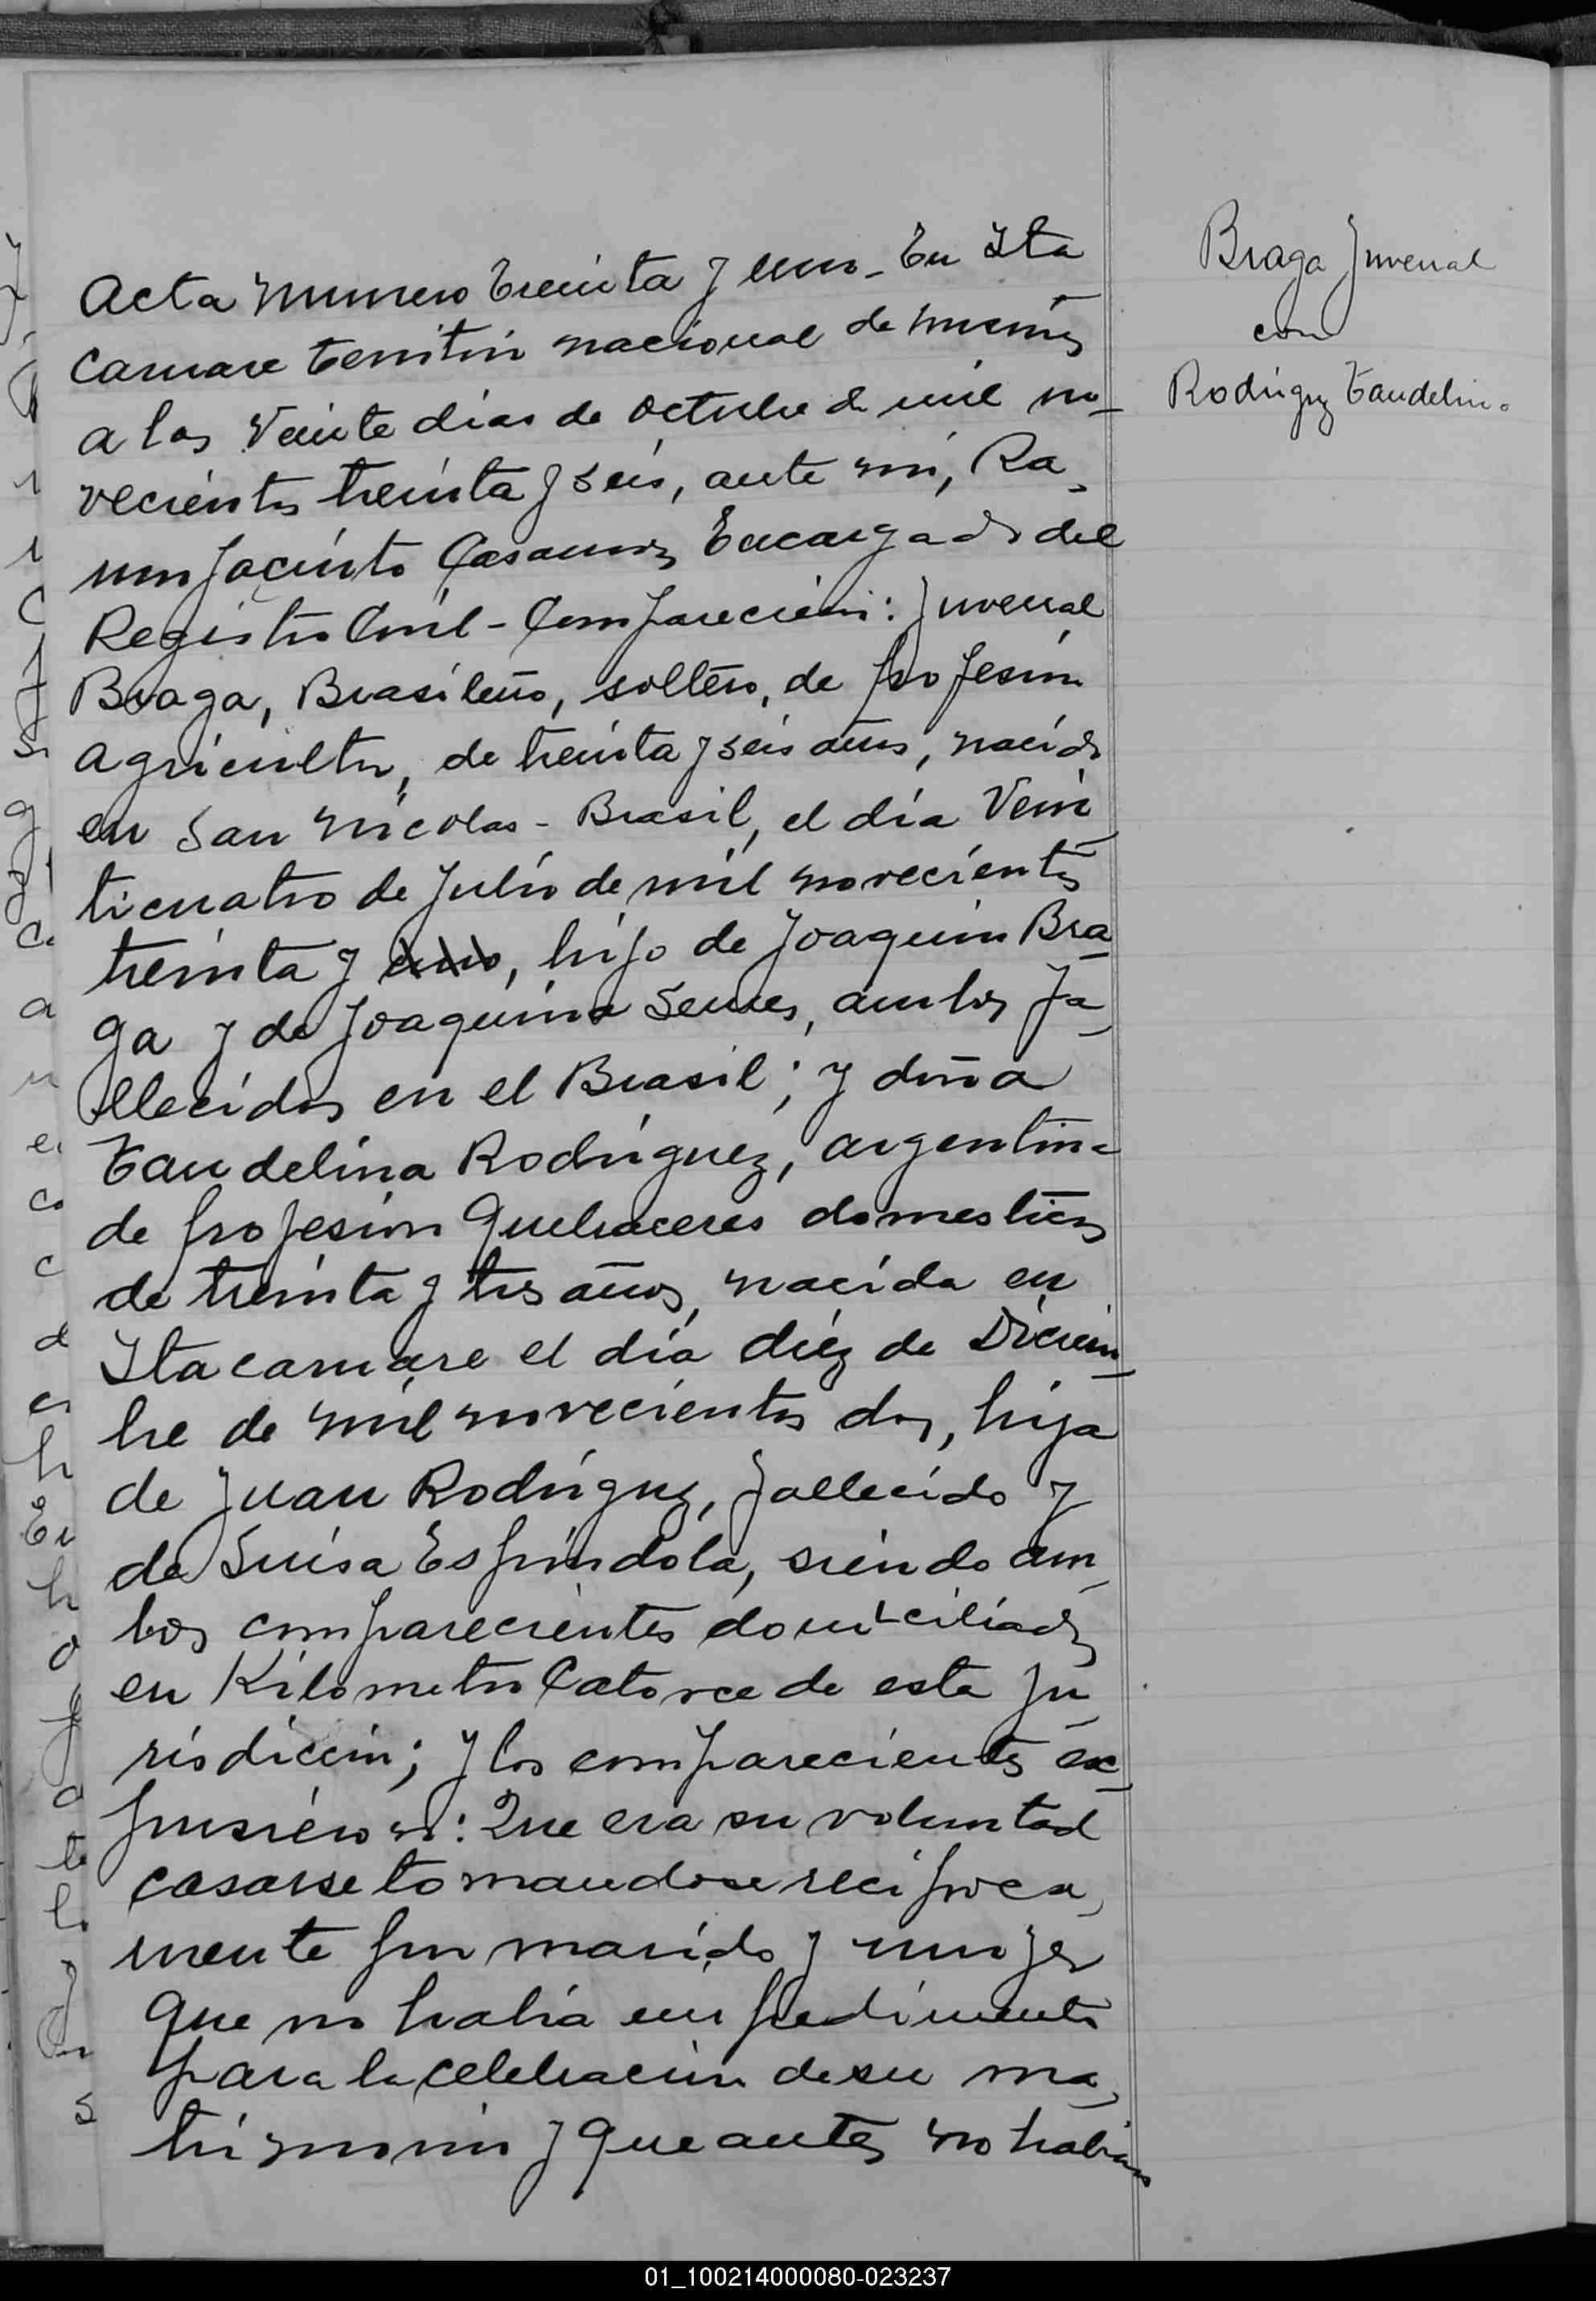 Braga Juvenal
con
Rodriguez Eaudelina
Acta Numero Treinta y uno - En Ita
camare territorio nacional de misiones
a los Veinte dias de octubre de mil no-
vecientos treinta y seis, ante mi, Ra-
mon Jacinto Casamor Encargado del
Registro Civil - Comparecieron: Juvenal
Braga, Brasileño, soltero, de profesion
agricultor, de treinta y seis años, nacido
en San Nicolas - Brasil, el día Vein
ticuatro de Julio de mil novecientos
treinta y uno, hijo de Joaquin Bra
ga y de Joaquina , ambos fa-
llecidos en el Brasil; y doña
Eaudelina Rodriguez, argentina
de profesion Quehaceres domesticos
de treinta y tres años, nacida en
Itacamare el día diéz de Diciem-
bre de mil novecientos dos, hija
de Juan Rodriguez, fallecido y
de Luisa Espíndola, siendo am-
bos comparecientes domiciliados
en Kilometro Catorce de esta ju-
risdiccion; y los comparecientes ex-
pusieron: Que era su voluntad
casarse tomandose reciproca-
mente por marido y mujer
que no habia impedimento
para la celebracion de su ma-
trimonio y que antes no habian
01_100214000080-023237